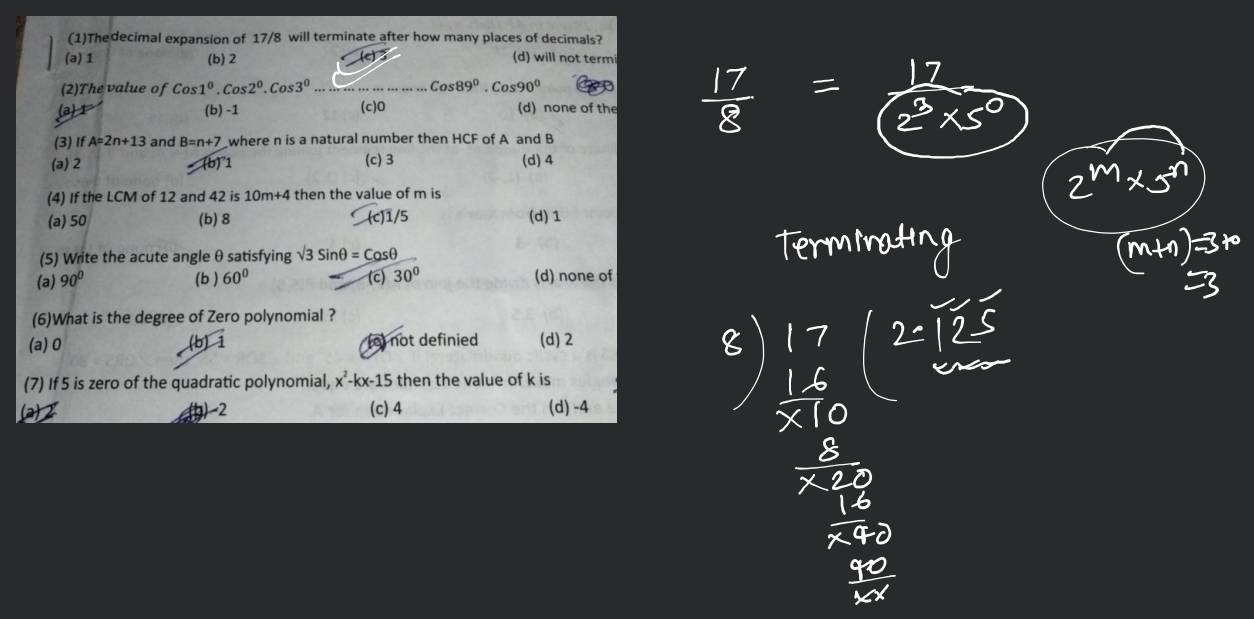 (1)The decimal expansion of 17/8 will terminate after how many places of decimals?
(a) 1 (b) 2 (c) 3 (d) will not termi
(2)The value of Cos1⁰. Cos2⁰. Cos3⁰ ... ... ... ... ... ... Cos89⁰ . Cos90⁰
(a) 1 (b) -1 (c)0 (d) none of the
(3) If A=2n+13 and B=n+7 where n is a natural number then HCF of A and B
(a) 2 (b) 1 (c) 3 (d) 4
(4) If the LCM of 12 and 42 is 10m+4 then the value of m is
(a) 50 (b) 8 (c)1/5 (d) 1
(5) Write the acute angle θ satisfying √3 Sinθ = Cosθ
(a) 90⁰ (b ) 60⁰ (c) 30⁰ (d) none of
(6)What is the degree of Zero polynomial ?
(a) 0 (b) 1 (c) not definied (d) 2
(7) If 5 is zero of the quadratic polynomial, x²-kx-15 then the value of k is
(a) 2 (b) -2 (c) 4 (d) -4
17/8 = 17/2³×5⁰
2ᵐ×5ⁿ
Terminating
(m+n)=3+0
=3
8)17(2.125
16
×10
8
×20
16
×40
40
××